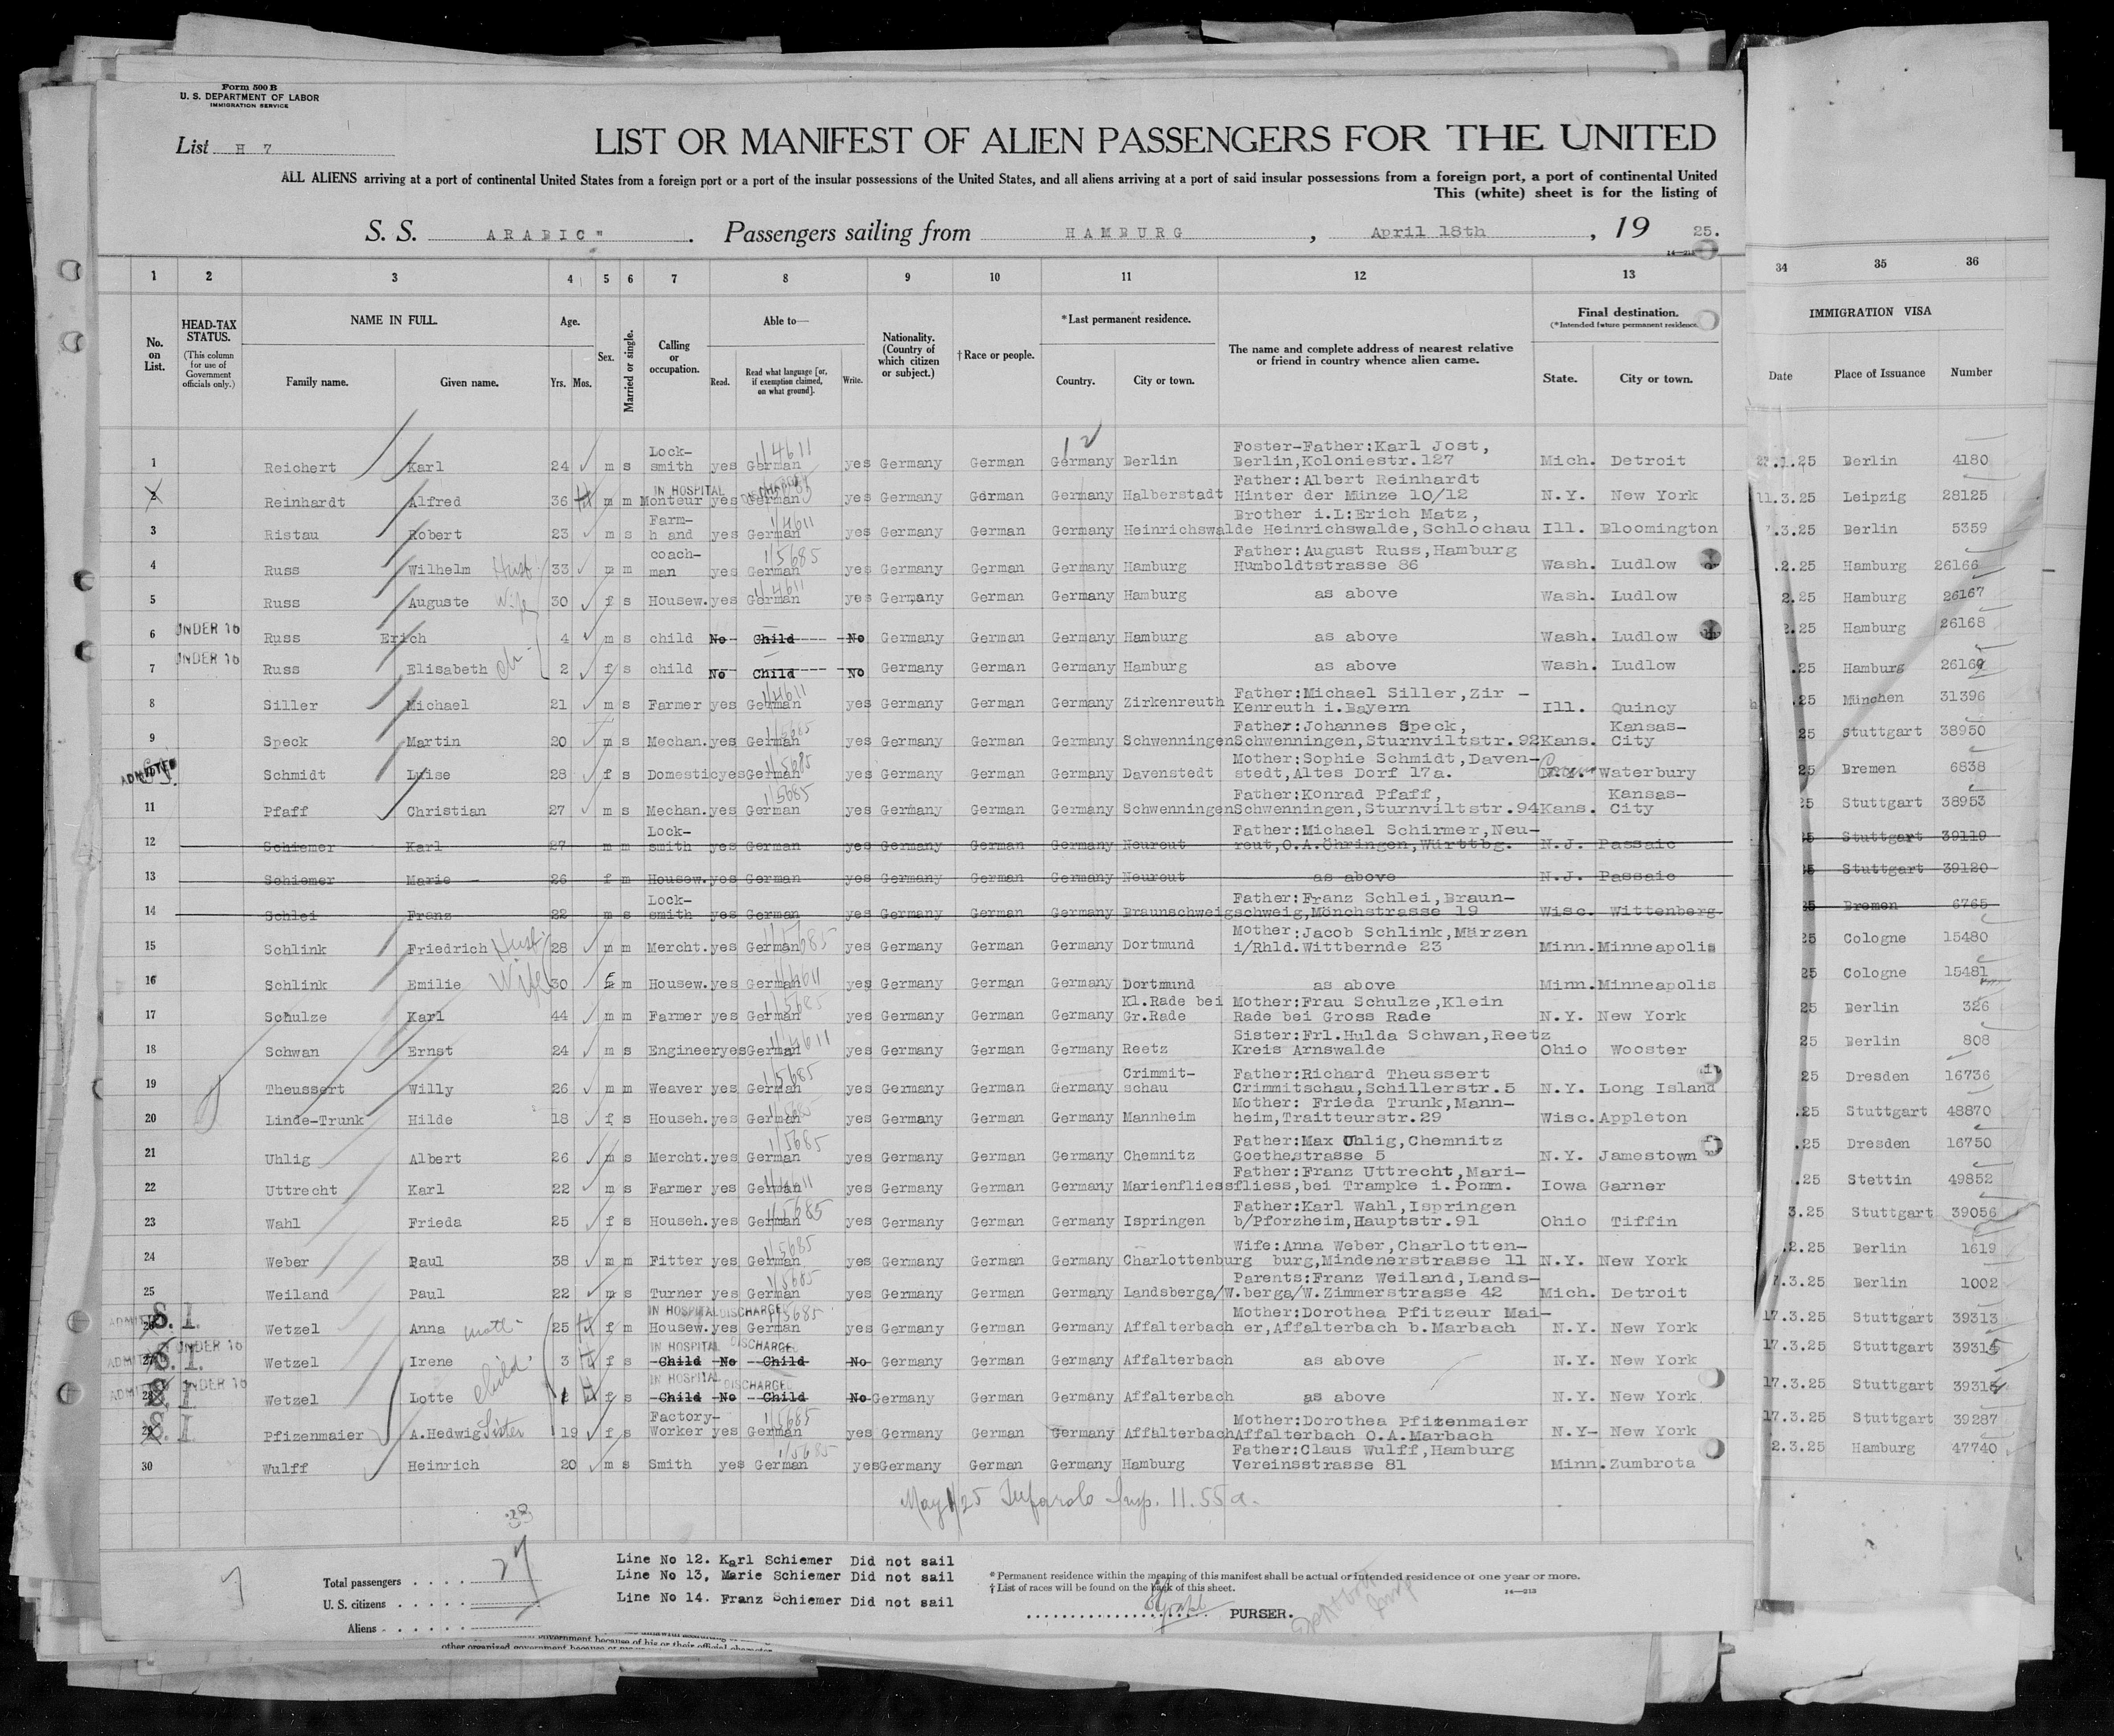 Form 500 B
U. S. DEPARTMENT OF LABOR
IMMIGRATION SERVICE
List H 7
LIST OR MANIFEST OF ALIEN PASSENGERS FOR THE UNITED
ALL ALIENS arriving at a port of continental United States from a foreign port or a port of the insular possessions of the United States, and all aliens arriving at a port of said insular possessions from a foreign port, a port of continental United
This (white) sheet is for the listing of
S. S. ARABIC" . Passengers sailing from HAMBURG , April 18th , 19 25.
1 2 3 4 5 6 7 8 9 10 11 12 13 34 35 36
No. on List. HEAD-TAX STATUS. (This column for use of Government officials only.) NAME IN FULL. Family name. Given name. Age. Yrs. Mos. Sex. Married or single. Calling or occupation. Able to— Read. Read what language [or, if exemption claimed, on what ground]. Write. Nationality. (Country of which citizen or subject.) † Race or people. *Last permanent residence. Country. City or town. The name and complete address of nearest relative or friend in country whence alien came. Final destination. (*Intended future permanent residence.) State. City or town. IMMIGRATION VISA Date Place of Issuance Number
12
1 Reichert Karl 24 m s Lock-smith yes German 1/4611 yes Germany German Germany Berlin Foster-Father:Karl Jost, Berlin,Koloniestr.127 Mich. Detroit .1.25 Berlin 4180
2 Reinhardt Alfred 36 m m IN HOSPITAL Monteur yes German yes Germany German Germany Halberstadt Father:Albert Reinhardt Hinter der Münze 10/12 N.Y. New York 11.3.25 Leipzig 28125
3 Ristau Robert 23 m s Farm-h and yes German 1/4611 yes Germany German Germany Heinrichswalde Brother i.L:Erich Matz, Heinrichswalde,Schlochau Ill. Bloomington .3.25 Berlin 5359
4 Russ Wilhelm Husb 33 m m coach-man yes German 1/5685 yes Germany German Germany Hamburg Father:August Russ,Hamburg Humboldtstrasse 86 Wash. Ludlow .2.25 Hamburg 26166
5 Russ Auguste Wife 30 f s Housew. yes German 1/4611 yes Germany German Germany Hamburg as above Wash. Ludlow 2.25 Hamburg 26167
6 UNDER 16 Russ Erich 4 m s child No Child No Germany German Germany Hamburg as above Wash. Ludlow 2.25 Hamburg 26168
7 UNDER 16 Russ Elisabeth Ch 2 f s child No Child No Germany German Germany Hamburg as above Wash. Ludlow .25 Hamburg 26169
8 Siller Michael 21 m s Farmer yes German 1/4611 yes Germany German Germany Zirkenreuth Father:Michael Siller,Zir - Kenreuth i.Bayern Ill. Quincy .25 München 31396
9 Speck Martin 20 m s Mechan. yes German 1/5685 yes Germany German Germany Schwenningen Father:Johannes Speck, Schwenningen,Sturnviltstr.92 Kans. Kansas-City 25 Stuttgart 38950
ADMITTED S.I. Schmidt Luise 28 f s Domestic yes German 1/5685 yes Germany German Germany Davenstedt Mother:Sophie Schmidt,Daven-stedt,Altes Dorf 17a. N.Y. Conn Waterbury 25 Bremen 6838
11 Pfaff Christian 27 m s Mechan. yes German 1/5685 yes Germany German Germany Schwenningen Father:Konrad Pfaff, Schwenningen,Sturnviltstr.94 Kans. Kansas-City 25 Stuttgart 38953
12 Schiemer Karl 27 m m Lock-smith yes German yes Germany German Germany Neurout Father:Michael Schirmer,Neu-rout,O.A.Öhringen,Württbg. N.J. Passaic 25 Stuttgart 39119
13 Schiemer Marie 26 f m Housew. yes German yes Germany German Germany Neurout as above N.J. Passaic 25 Stuttgart 39120
14 Schlei Franz 22 m s Lock-smith yes German yes Germany German Germany Braunschweig Father:Franz Schlei,Braun-schweig,Mönchstrasse 19 Wisc. Wittenberg 25 Bremen 6765
15 Schlink Friedrich Husb 28 m m Mercht. yes German 1/5685 yes Germany German Germany Dortmund Mother:Jacob Schlink,Märzen i/Rhld.Wittbernde 23 Minn. Minneapolis 25 Cologne 15480
16 Schlink Emilie Wife 30 f m Housew. yes German 1/4611 yes Germany German Germany Dortmund as above Minn. Minneapolis 25 Cologne 15481
17 Schulze Karl 44 m m Farmer yes German 1/5685 yes Germany German Germany Kl.Rade bei Gr.Rade Mother:Frau Schulze,Klein Rade bei Gross Rade N.Y. New York 25 Berlin 326
18 Schwan Ernst 24 m s Engineer yes German 1/4611 yes Germany German Germany Reetz Sister:Frl.Hulda Schwan,Reetz Kreis Arnswalde Ohio Wooster 25 Berlin 808
19 Theussert Willy 26 m m Weaver yes German 1/5685 yes Germany German Germany Crimmit-schau Father:Richard Theussert Crimmitschau,Schillerstr.5 N.Y. Long Island 25 Dresden 16736
20 Linde-Trunk Hilde 18 f s Househ. yes German 1/5685 yes Germany German Germany Mannheim Mother: Frieda Trunk,Mann-heim,Traitteurstr.29 Wisc. Appleton .25 Stuttgart 48870
21 Uhlig Albert 26 m s Mercht. yes German 1/5685 yes Germany German Germany Chemnitz Father:Max Uhlig,Chemnitz Goethestrasse 5 N.Y. Jamestown .25 Dresden 16750
22 Uttrecht Karl 22 m s Farmer yes German 1/4611 yes Germany German Germany Marienfliess Father:Franz Uttrecht,Mari-fliess,bei Trampke i.Pomm. Iowa Garner .25 Stettin 49852
23 Wahl Frieda 25 f s Househ. yes German 1/5685 yes Germany German Germany Ispringen Father:Karl Wahl,Ispringen b/Pforzheim,Hauptstr.91 Ohio Tiffin 3.25 Stuttgart 39056
24 Weber Paul 38 m m Fitter yes German 1/5685 yes Germany German Germany Charlottenburg Wife:Anna Weber,Charlotten-burg,Mindenerstrasse 11 N.Y. New York .2.25 Berlin 1619
25 Weiland Paul 22 m s Turner yes German 1/5685 yes Germany German Germany Landsberga/W. Parents:Franz Weiland,Lands-berga/W.Zimmerstrasse 42 Mich. Detroit .3.25 Berlin 1002
26 S.I. Wetzel Anna moth- 25 f m IN HOSPITAL DISCHARGED Housew. yes German 1/5685 yes Germany German Germany Affalterbach Mother:Dorothea Pfitzeur Mai-er,Affalterbach b.Marbach N.Y. New York 17.3.25 Stuttgart 39313
27 S.I. UNDER 16 Wetzel Irene child 3 f s IN HOSPITAL DISCHARGED Child No Child No Germany German Germany Affalterbach as above N.Y. New York 17.3.25 Stuttgart 39315
28 S.I. UNDER 16 Wetzel Lotte f s IN HOSPITAL DISCHARGED Child No Child No Germany German Germany Affalterbach as above N.Y. New York 17.3.25 Stuttgart 39314
29 S.I. Pfizenmaier A.Hedwig Sister 19 f s Factory-Worker yes German 1/5685 yes Germany German Germany Affalterbach Mother:Dorothea Pfizenmaier Affalterbach O.A.Marbach N.Y- New York 17.3.25 Stuttgart 39287
30 Wulff Heinrich 20 m s Smith yes German 1/5685 yes Germany German Germany Hamburg Father:Claus Wulff,Hamburg Vereinsstrasse 81 Minn. Zumbrota 2.3.25 Hamburg 47740
May 1/25 Insp. 11.55 a.
Total passengers . . . . 27
U. S. citizens . . . . .
Aliens . . . . . .
Line No 12. Karl Schiemer Did not sail
Line No 13, Marie Schiemer Did not sail
Line No 14. Franz Schiemer Did not sail
* Permanent residence within the meaning of this manifest shall be actual or intended residence of one year or more.
† List of races will be found on the back of this sheet.
PURSER.
other organized government because of his or their official character